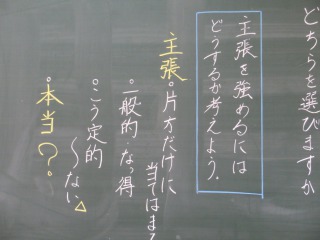 どちらを選びますか
主張を強めるには
どうするか考えよう。
主張。片方だけに
当てはまる
。一般的・なっ得
。こう定的
〜ない△
。本当？。